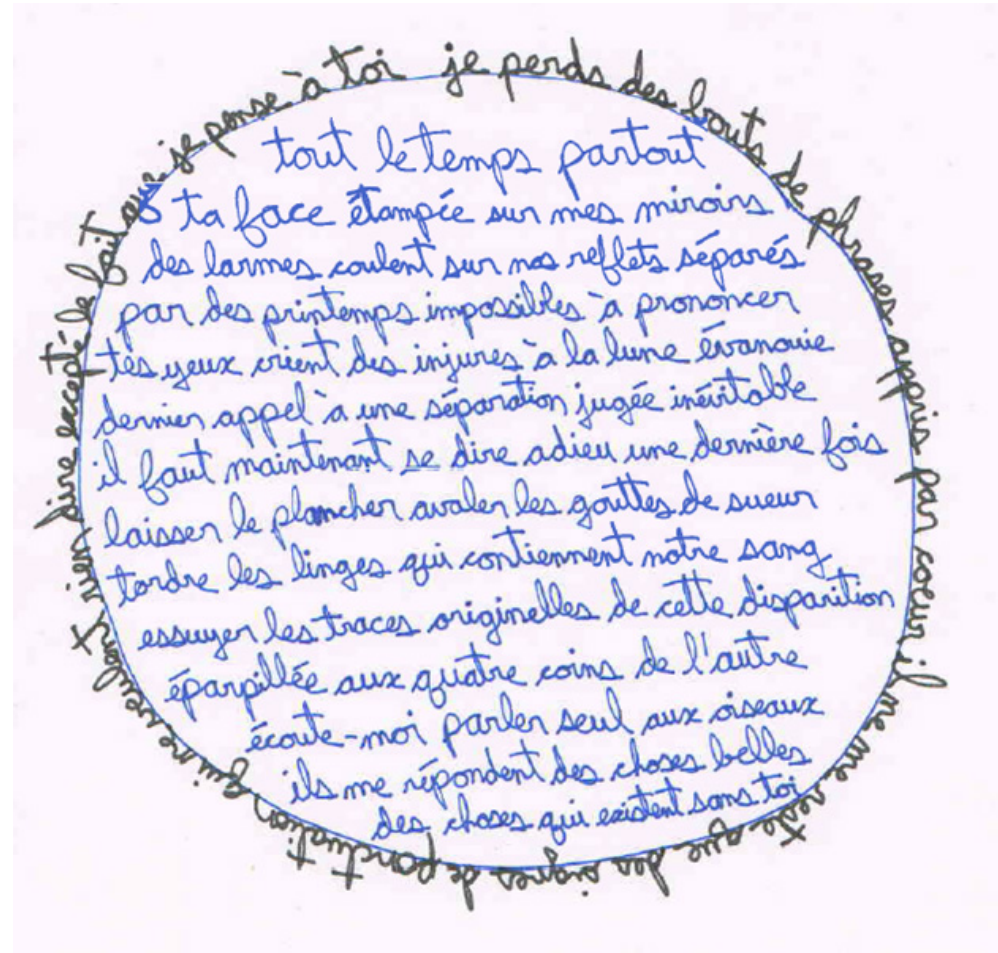 je perds des bouts de phrases appris par coeur il me reste que des signes de ponctuation qui ne veulent rien dire excepté le fait que je pense à toi
tout le temps partout
ta face étampée sur mes miroirs
des larmes coulent sur nos reflets séparés
par des printemps impossibles à prononcer
tes yeux crient des injures à la lune évanouie
dernier appel à une séparation jugée inévitable
il faut maintenant se dire adieu une dernière fois
laisser le plancher avaler les gouttes de sueur
tordre les linges qui contiennent notre sang
essuyer les traces originelles de cette disparition
éparpillée aux quatre coins de l'autre
écoute-moi parler seul aux oiseaux
ils me répondent des choses belles
des choses qui existent sans toi